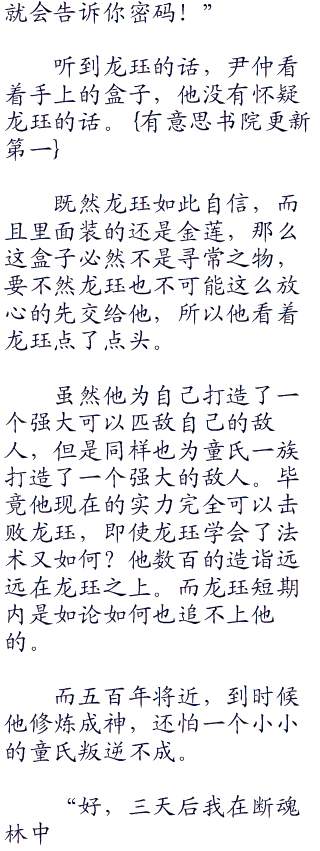 就会告诉你密码！”
听到龙珏的话，尹仲看
着手上的盒子，他没有怀疑
龙珏的话。{有意思书院更新
第一}
既然龙珏如此自信，而
且里面装的还是金莲，那么
这盒子必然不是寻常之物，
要不然龙珏也不可能这么放
心的先交给他，所以他看着
龙珏点了点头。
虽然他为自己打造了一
个强大可以匹敌自己的敌
人，但是同样也为童氏一族
打造了一个强大的敌人。毕
竟他现在的实力完全可以击
败龙珏，即使龙珏学会了法
术又如何？他数百的造诣远
远在龙珏之上。而龙珏短期
内是如论如何也追不上他
的。
而五百年将近，到时候
他修炼成神，还怕一个小小
的童氏叛逆不成。
“好，三天后我在断魂
林中